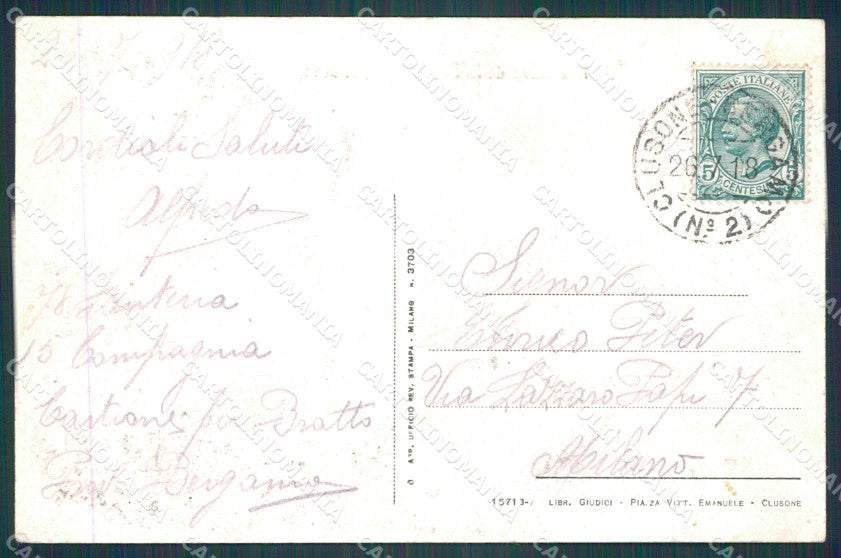 7 918
Cordiali Saluti
Alfredo
78 Fanteria
15 Compagnia
Castione per Bratto
Bergamo
POSTE ITALIANE
5 5
CENTESIMI
CLUSONE
BERGAMO
26.7.18
(Nº 2)
Signor
Enrico Peter
Via Lazzaro Papi 7
Milano
APP. UFFICIO REV. STAMPA - MILANO N. 3703
15713- LIBR. GIUDICI - PIAZZA VITT. EMANUELE - CLUSONE
CARTOLINOMANIA